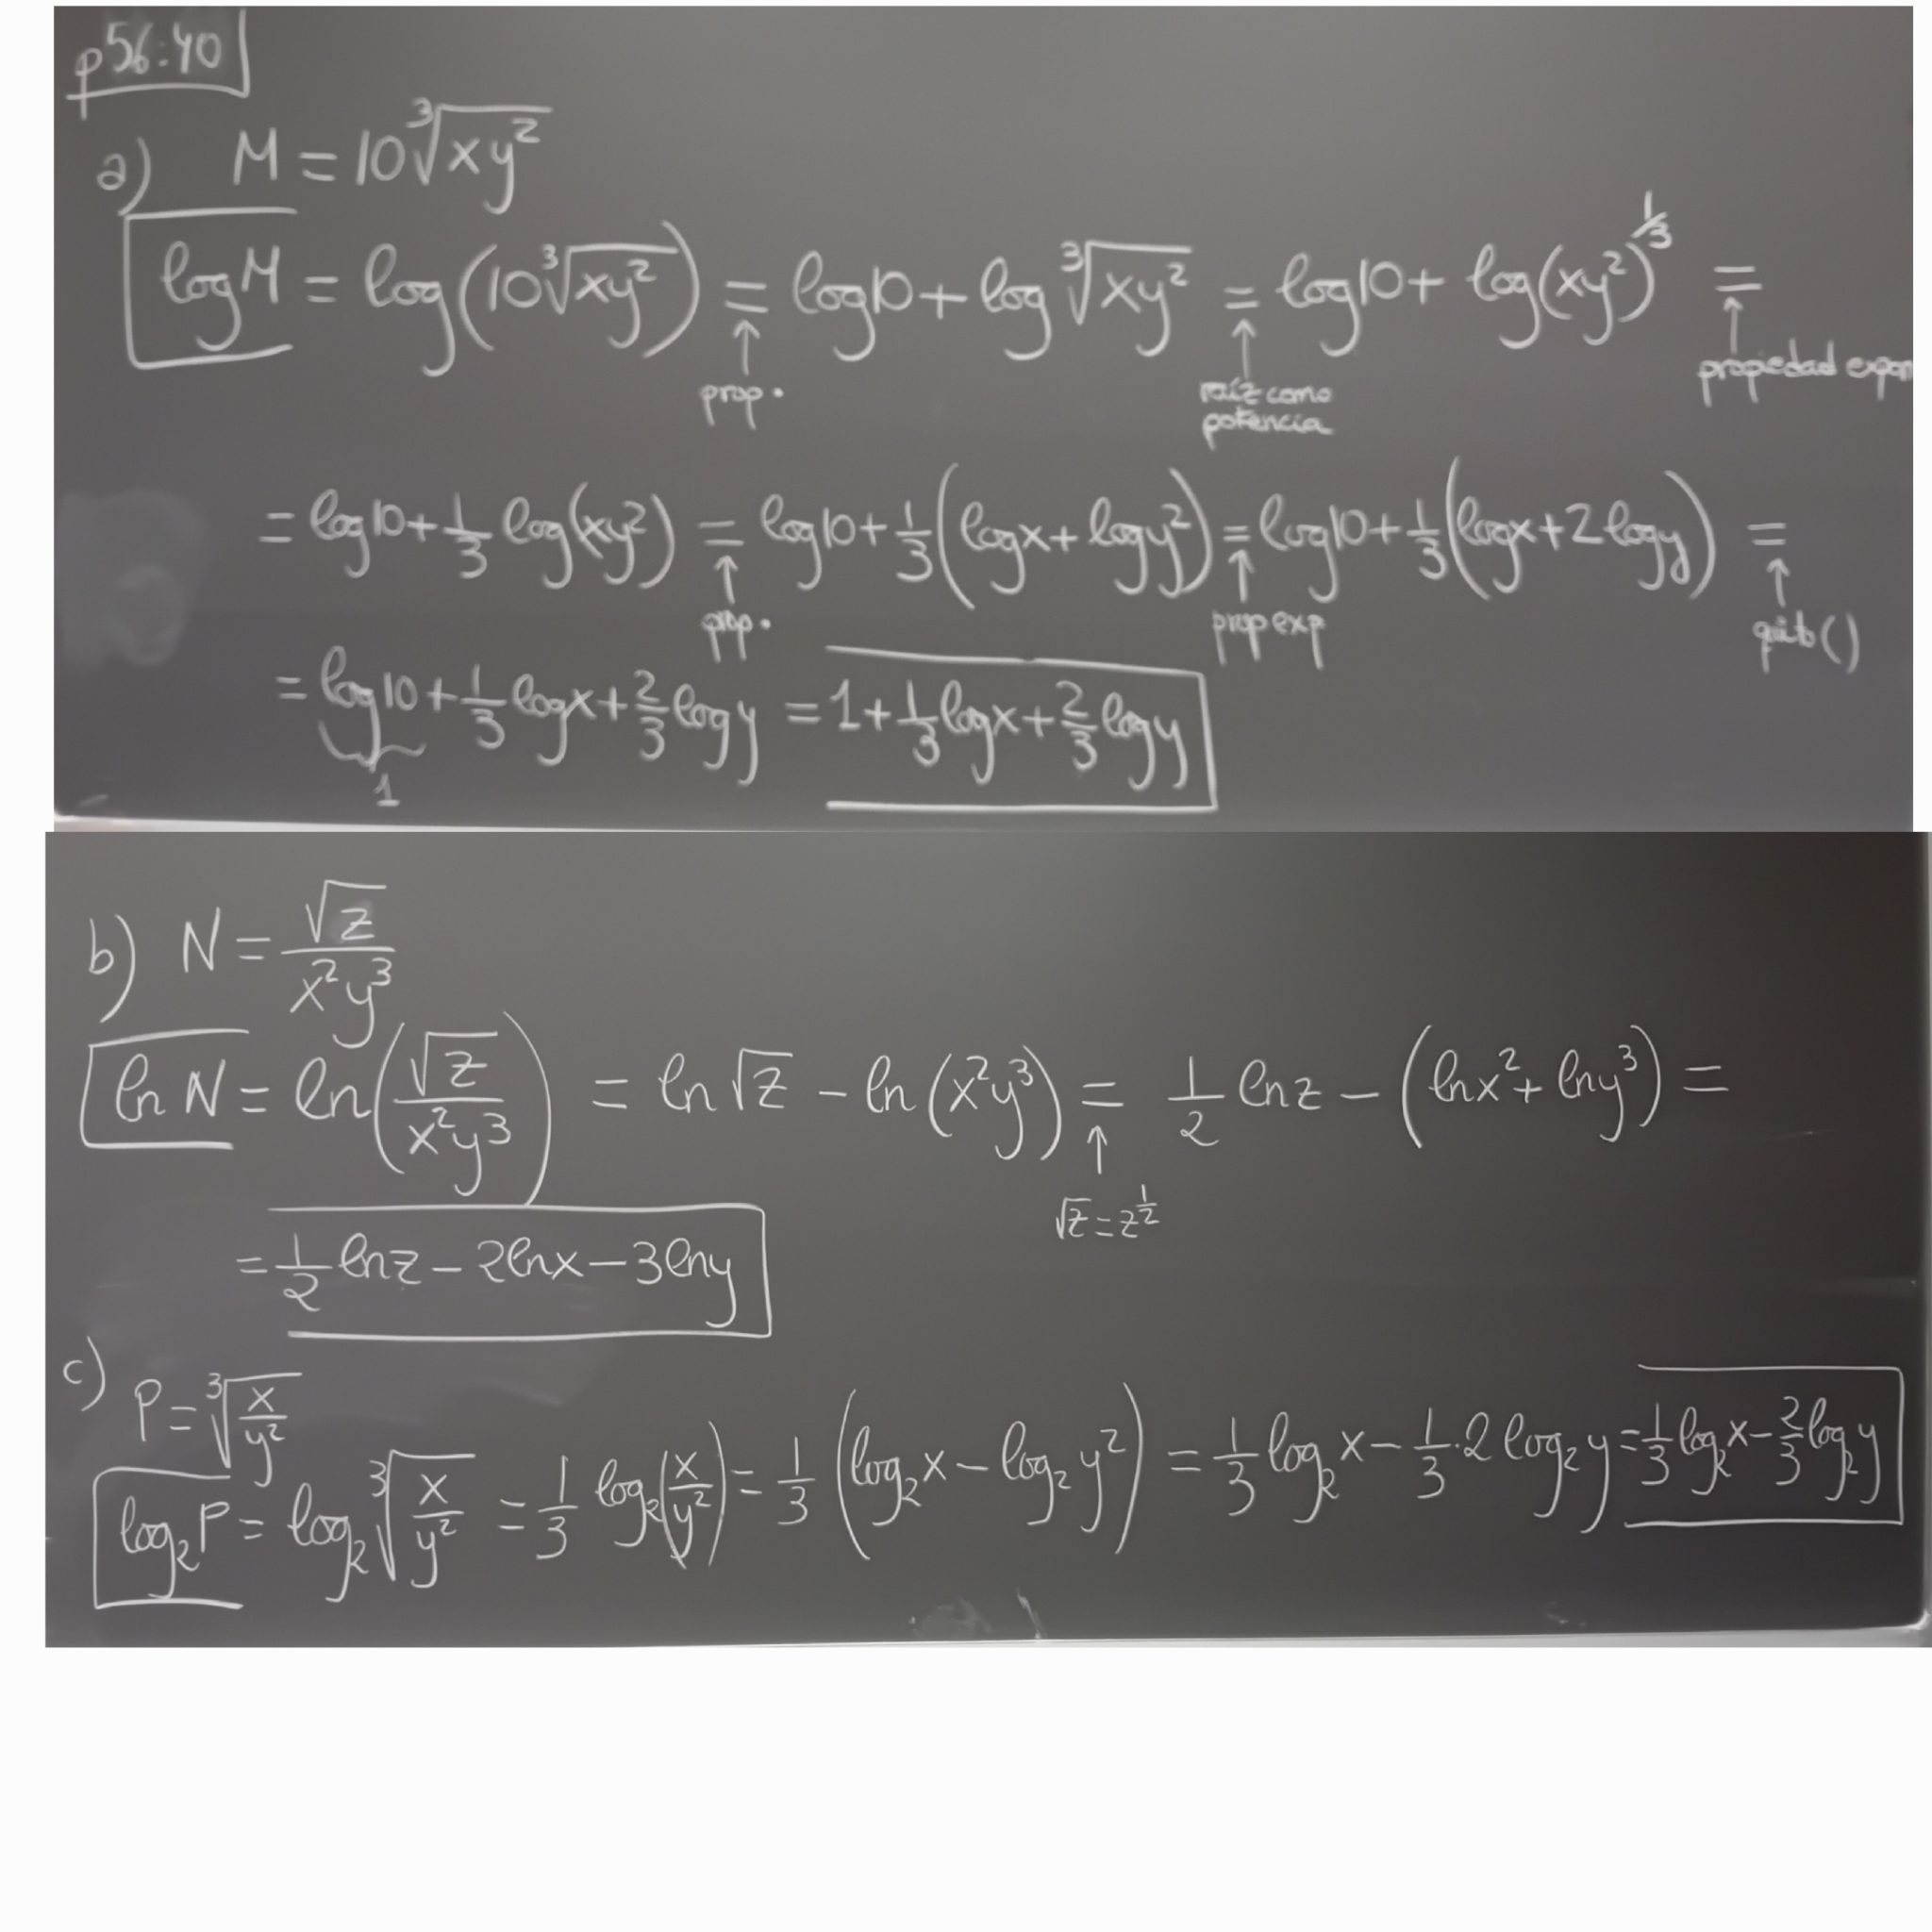 p56:40
a) M = 10∛(xy²)
log M = log(10∛(xy²)) = log10 + log ∛(xy²) = log10 + log(xy²)^(1/3) =
↑ prop. ↑ raíz como potencia ↑ propiedad expon
= log10 + 1/3 log(xy²) = log10 + 1/3 (logx + logy²) = log10 + 1/3 (logx + 2 logy) =
↑ prop. ↑ prop exp ↑ quito ()
= log10 + 1/3 logx + 2/3 logy = 1 + 1/3 logx + 2/3 logy
1
b) N = √z / x²y³
ln N = ln(√z / x²y³) = ln √z − ln (x²y³) = 1/2 lnz − (lnx² + lny³) =
↑ √z = z^(1/2)
= 1/2 lnz − 2lnx − 3lny
c) P = ∛(x/y²)
log₂P = log₂ ∛(x/y²) = 1/3 log₂(x/y²) = 1/3 (log₂x − log₂y²) = 1/3 log₂x − 1/3·2 log₂y = 1/3 log₂x − 2/3 log₂y